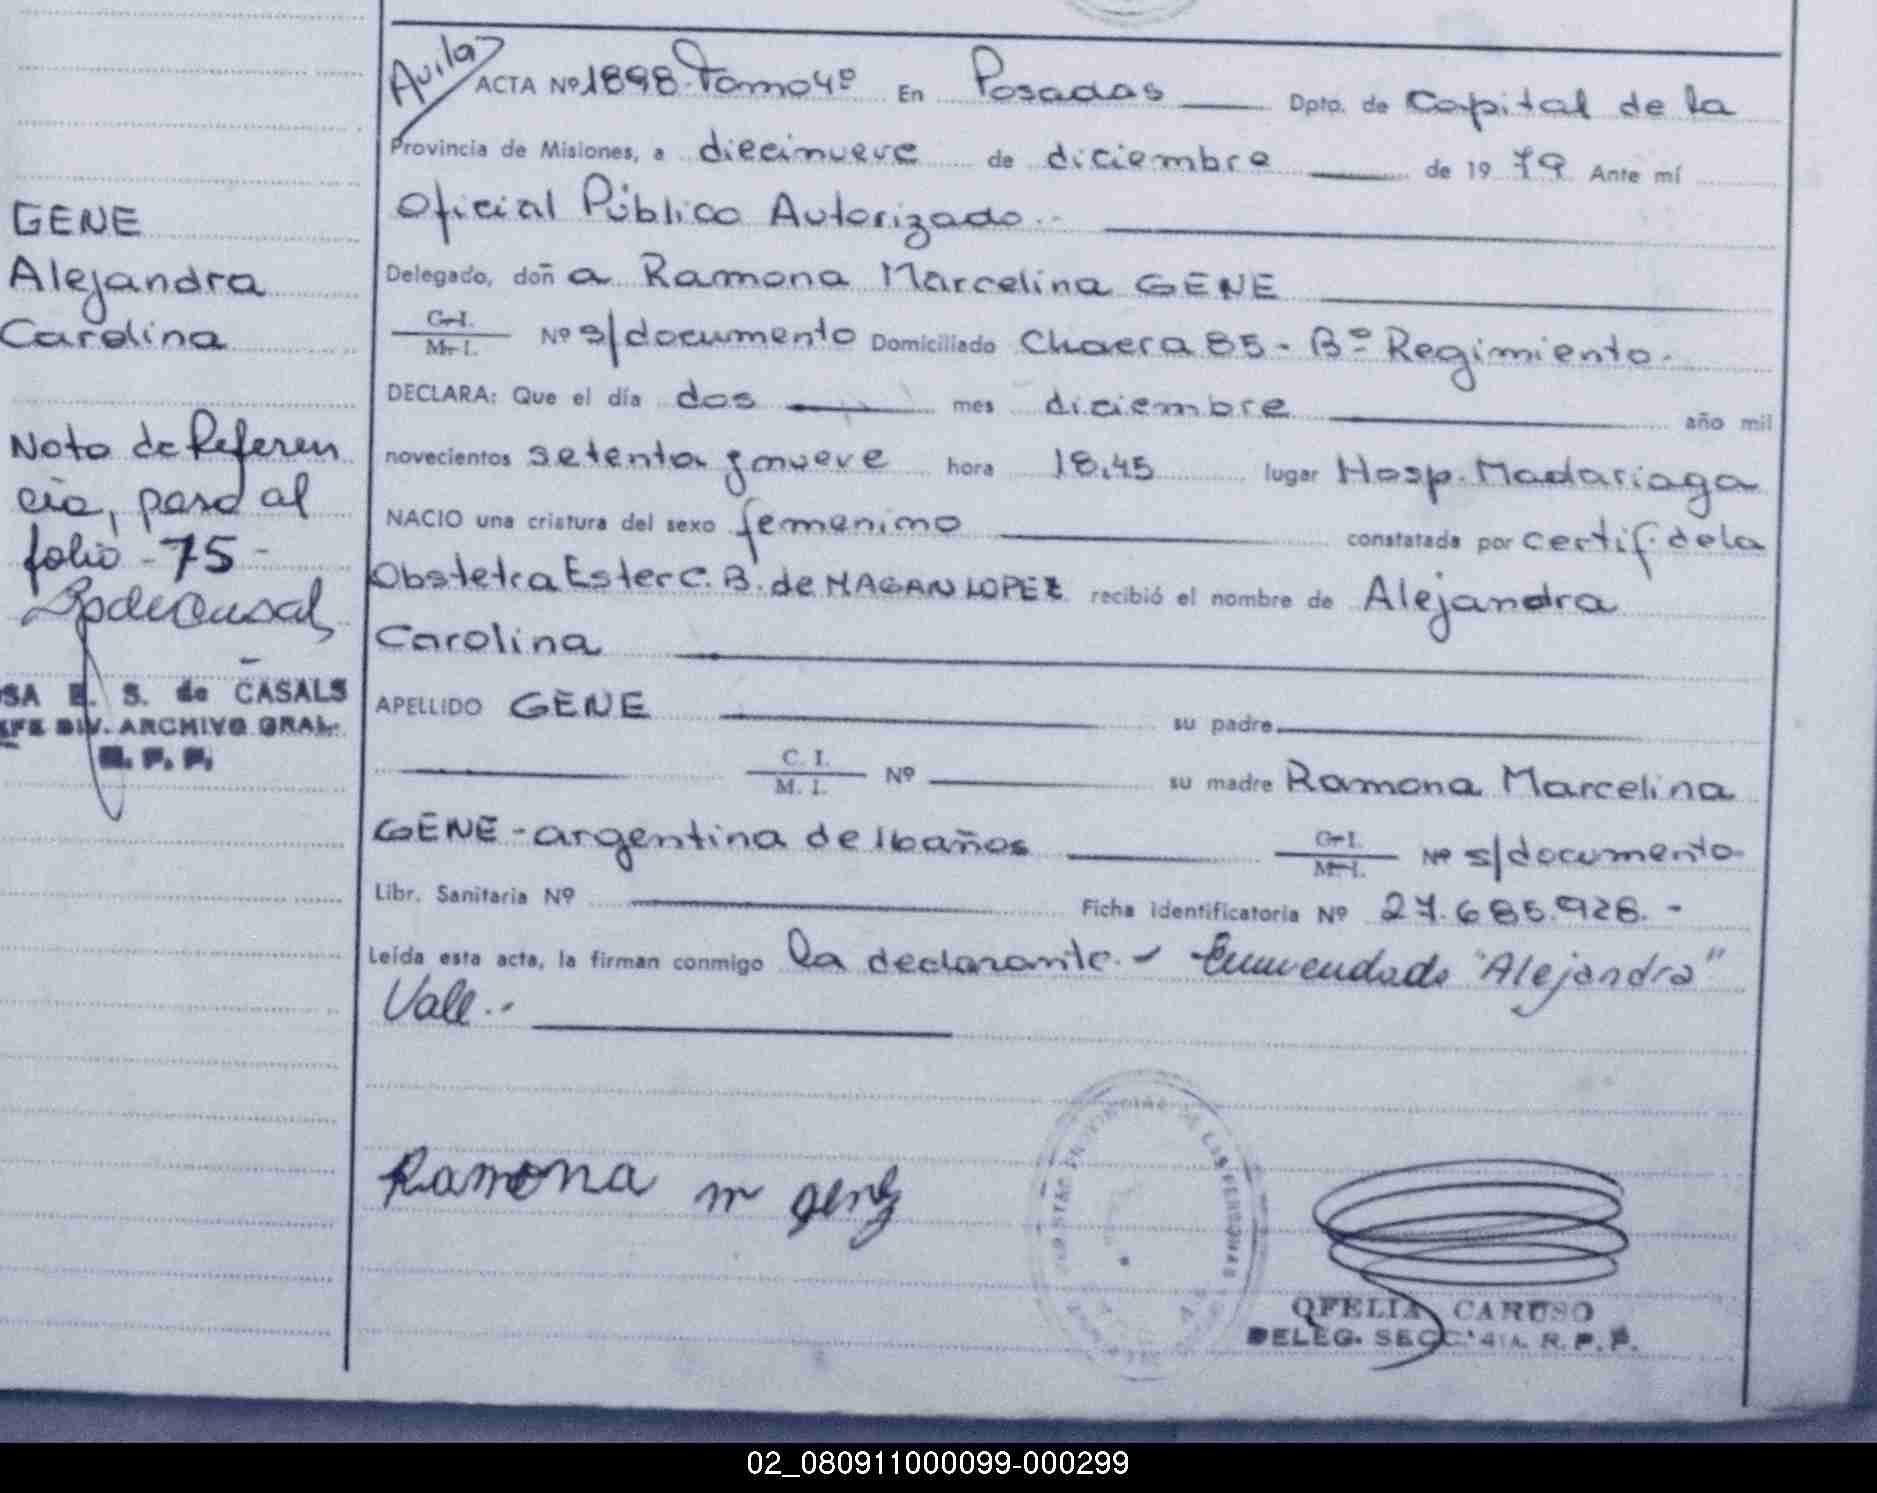 GENE
Alejandra
Carolina
Nota de Referen
cia, pasa al
folio - 75 -
SA E. S. de CASALS
EFE DIV. ARCHIVO GRAL.
R. P. P.
Avila
ACTA Nº 1898 - Tomo 4º En Posadas Dpto. de Capital de la
Provincia de Misiones, a diecinueve de diciembre de 1979 Ante mí
Oficial Público Autorizado.-
Delegado, doña Ramona Marcelina GENE
C. I.
M. I. Nº s/documento Domiciliado Chacra 85 - Bº Regimiento.
DECLARA: Que el día dos mes diciembre año mil
novecientos setenta y nueve hora 18,45 lugar Hosp. Madariaga
NACIO una criatura del sexo femenino constatada por certif. de la
Obstetra Ester C. B. de MAGAN LOPEZ recibió el nombre de Alejandra
Carolina
APELLIDO GENE su padre
C. I.
M. I. Nº su madre Ramona Marcelina
GENE - argentina de 16 años C. I.
M. I. Nº s/documento
Libr. Sanitaria Nº Ficha identificatoria Nº 27.685.928. -
Leída esta acta, la firman conmigo la declarante. - Enmendado "Alejandra"
Vale.-
Ramona m gene
OFELIA CARUSO
DELEG. SECC. 4ta. R. P. P.
02_080911000099-000299